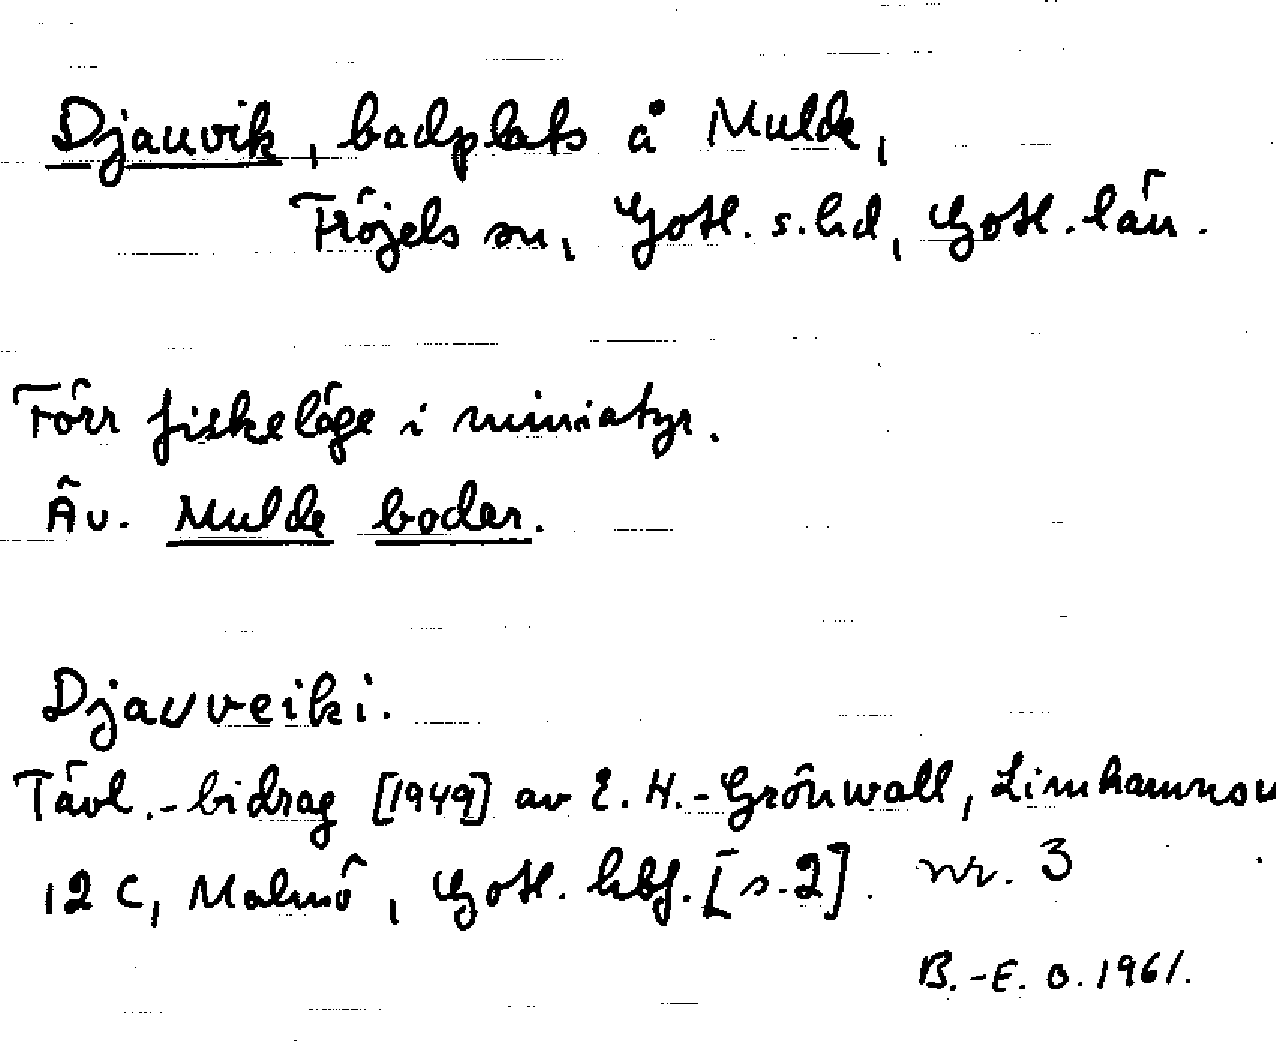 Djauvik, badplats å Mulde,
Fröjels sn, Gotl. s. hd, Gotl. län.
Förr fiskeläge i miniatyr.
Äv. Mulde boder.
Djauveiki.
Tävl.-bidrag [1949] av E. H.-Grönwall, Limhamnsv
12 C, Malmö, Gotl. hbf. [s. 2]. nr. 3
B.-E. O. 1961.